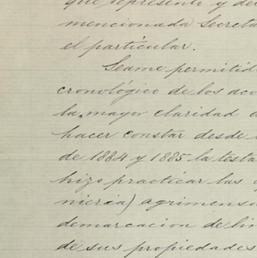 que represente y de
mencionada Secreta
el particular.
Seame permitid
cronológico de los aco
la mayor claridad
hacer constar desde
de 1884 y 1885 la testa
hizo practicar las
niería) agrimenso
demarcacion de lin
de sus propiedades